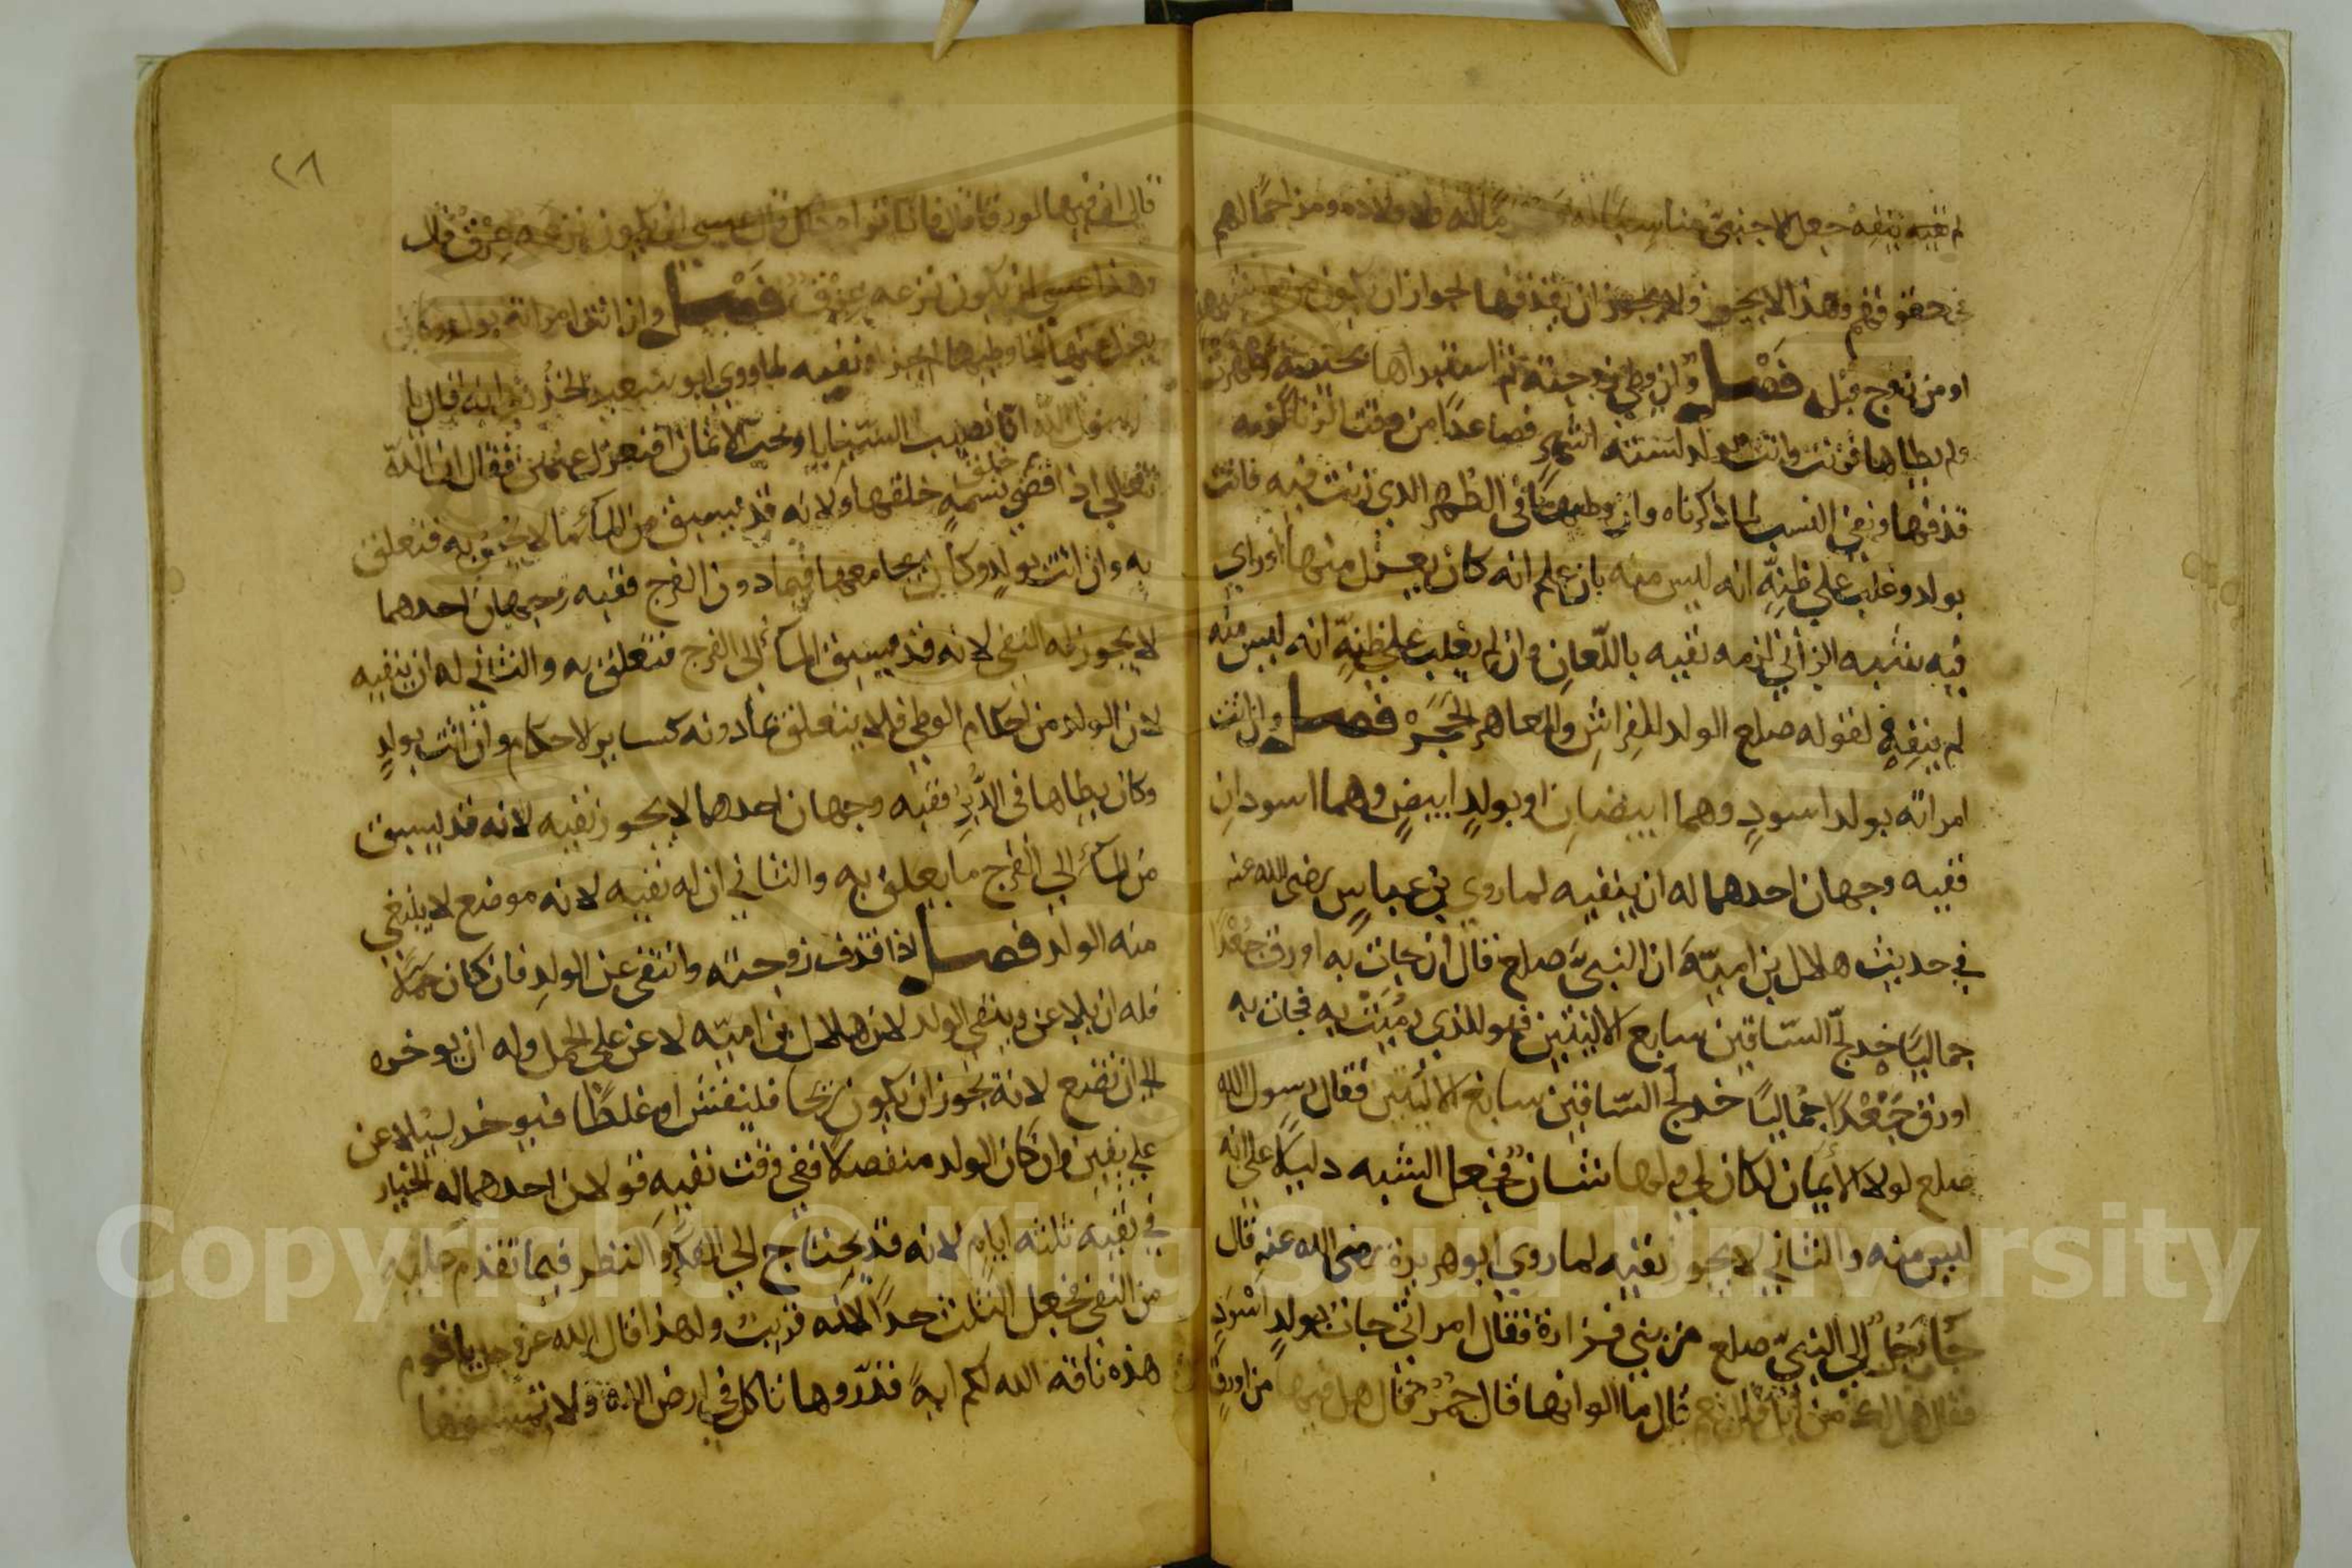 لم نفيه بنفيه جعل الاجنبي مناسبا له ومحرما له ولاولاده ومزاحما لهم
في حقوقهم وهذا لا يجوز ولا يجوز ان يقذفها لجواز ان يكون من وطئ شبهة
او من زوج قبل فصل وان وطئ زوجته ثم استبراها بحيضة وطهرت
ولم يطاها فزنت واتت بولد لستة اشهر فصاعدا من وقت الزنا لزمه
قذفها ونفي النسب لما ذكرناه وان وطيها في الطهر الذي زنت فيه فاتت
بولد وغلب علي ظنه انه ليس منه بان علم انه كان يعزل منها او راي
فيه شبه الزاني لزمه نفيه باللعان وان لم يغلب علي ظنه انه ليس منه
لم ينفه لقوله صلع الولد للفراش والعاهر الحجر فصل وان اتت
امراته بولد اسود وهما ابيضان او بولد ابيض وهما اسودان
ففيه وجهان احدهما له ان ينفيه لما روي بن عباس رضى الله عنه
في حديث هلال بن امية ان النبي صلع قال ان جات به اورق جعدا
جماليا خدلج الساقين سابع الاليتين فهو للذي رميت به فجات به
اورق جعدا جماليا خدلج الساقين سابغ الاليتين فقال رسول الله
صلع لولا الأيمان لكان لي ولها شان فجعل الشبه دليلا علي انه
ليس منه والثاني لا يجوز نفيه لما روي ابو هريرة رضى الله عنه قال
جا رجل إلى النبي صلع من بني فزارة فقال امراتي جات بولد اسود
فقال هل لك من ابل قال نعم قال ما الوانها قال حمر قال هل فيها من اورق
قال ان فيها لورقا قال فانا ترا ذلك قال عسي ان يكون نزعه عرق قال
وهذا عسى ان يكون نزعه عرق فصل وان اتت امراته بولد وكان
يعزل عنها اذا وطيها لم يجز له نفيه لما روي ابو سعيد الخدري انه قال يا
رسول الله انا نصيب السبايا ونحب الاثمان افنعزل عنهن فقال ان الله
تعالي اذا قضى خلق نسمة خلقها ولانه قد يسبق من الماء ما لا يحس به فتعلق
به وان اتت بولد وكان يجامعها فيما دون الفرج ففيه وجهان احدهما
لا يجوز له النفي لانه قد يسبق الماء إلى الفرج فتعلق به والثاني له ان ينفيه
لان الولد من احكام الوطئ فلا يتعلق بما دونه كساير الاحكام وان اتت بولد
وكان يطاها في الدبر ففيه وجهان احدهما لا يجوز نفيه لانه قد يسبق
من الماء الي الفرج ما يعلق به والثاني ان له نفيه لانه موضع لا يبتغي
منه الولد فصل اذا قذف زوجته وانتفي عن الولد فان كان حملا
فله ان يلاعن وينفي الولد لان هلال بن امية لاعن علي الحمل وله ان يوخره
الي ان تضع لانة يجوز ان يكون ريحا فلينفش او غلظا فيوخر ليلاعن
علي يقين وان كان الولد منفصلا ففي وقت نفيه قولان احدهما له الخيار
في نفيه ثلثة ايام لانه قد يحتاج الي الفكر والنظر فيما تقدم عليه
من النفي فجعل الثلث حدا لانه قريب ولهذا قال الله عز وجل يا قوم
هذه ناقة الله لكم اية فذروها تاكل في ارض الله ولا تمسوها
٢٨